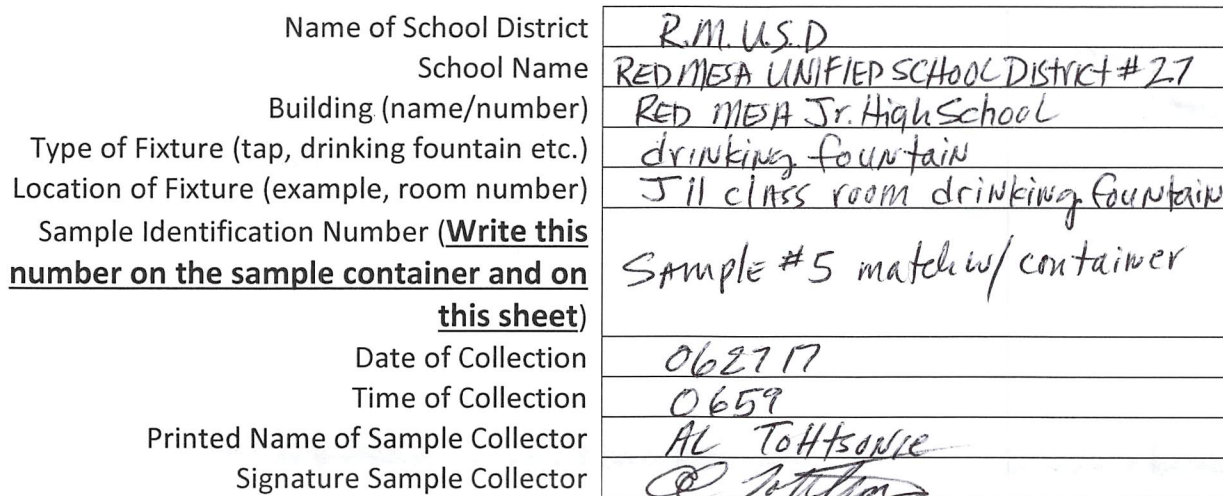 Name of School District R.M.U.S.D
School Name RED MESA UNIFIED SCHOOL DISTRICT #27
Building (name/number) RED MESA Jr. High School
Type of Fixture (tap, drinking fountain etc.) drinking fountain
Location of Fixture (example, room number) J11 class room drinking fountain
Sample Identification Number (Write this
number on the sample container and on
this sheet) Sample #5 match w/ container
Date of Collection 062717
Time of Collection 0659
Printed Name of Sample Collector AL TOHTSONIE
Signature Sample Collector